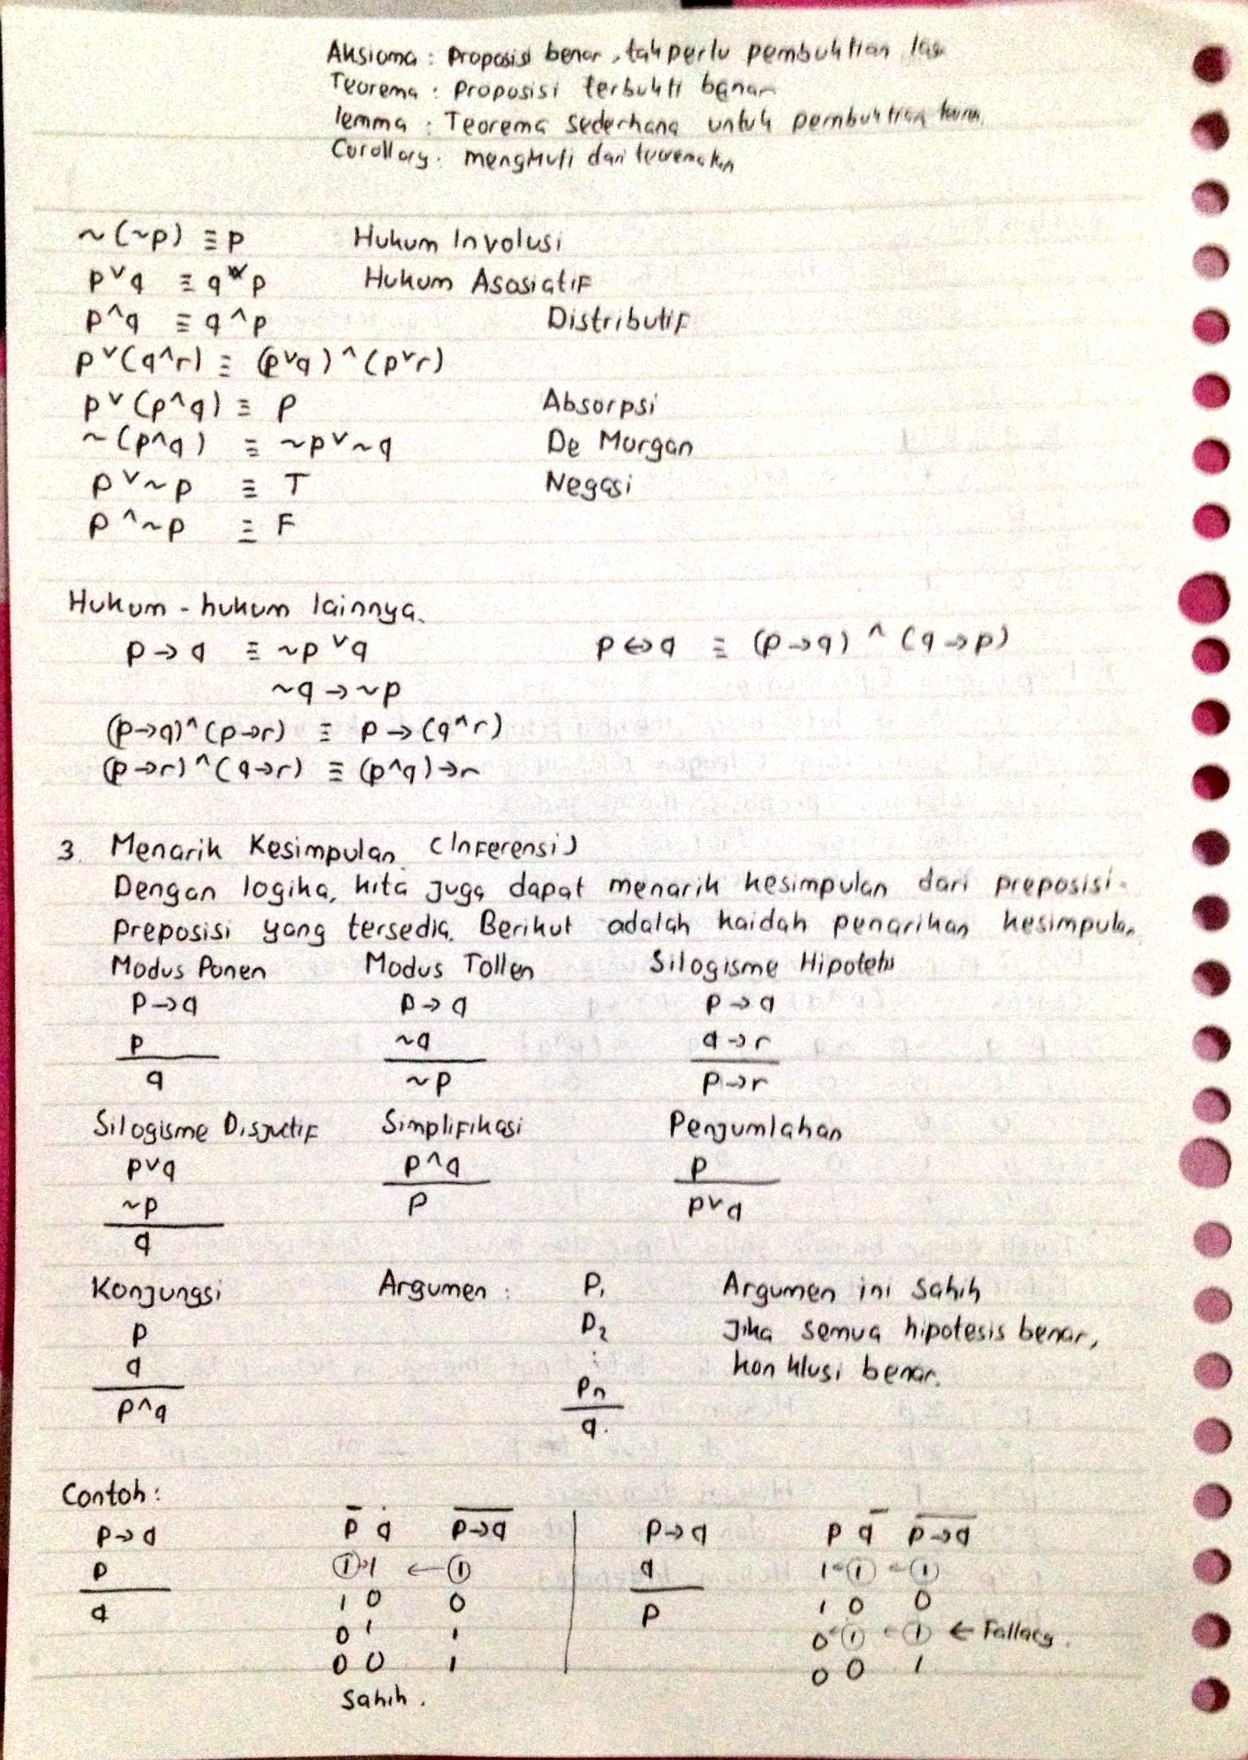 Aksioma : Proposisi benar, tak perlu pembuktian lagi
Teorema : Proposisi terbukti benar
lemma : Teorema sederhana untuk pembuktian
Corollary : mengikuti dari
~(~p) ≡ p Hukum Involusi
p ∨ q ≡ q ∨ p Hukum Asosiatif
p ∧ q ≡ q ∧ p Distributif
p ∨ (q ∧ r) ≡ (p ∨ q) ∧ (p ∨ r)
p ∨ (p ∧ q) ≡ p Absorpsi
~(p ∧ q) ≡ ~p ∨ ~q De Morgan
p ∨ ~p ≡ T Negasi
p ∧ ~p ≡ F
Hukum - hukum lainnya.
p → q ≡ ~p ∨ q p ↔ q ≡ (p → q) ∧ (q → p)
~q → ~p
(p → q) ∧ (p → r) ≡ p → (q ∧ r)
(p → r) ∧ (q → r) ≡ (p ∧ q) → r
3. Menarik Kesimpulan (Inferensi)
Dengan logika, kita juga dapat menarik kesimpulan dari preposisi-
preposisi yang tersedia. Berikut adalah kaidah penarikan kesimpulan
Modus Ponen Modus Tollen Silogisme Hipotetis
p → q p → q p → q
p ~q q → r
q ~p p → r
Silogisme Disjutif Simplifikasi Penjumlahan
p ∨ q p ∧ q p
~p p p ∨ q
q
Konjungsi Argumen : P1 Argumen ini sahih
p P2 Jika semua hipotesis benar,
q : konklusi benar.
p ∧ q Pn
q.
Contoh :
p → q p q p → q p → q p q p → q
p 1 → 1 ← 1 q 1 ← 1 ← 1
q 1 0 0 p 1 0 0
0 1 1 0 ← 1 ← 1 ← Fallacy.
0 0 1 0 0 1
Sahih.